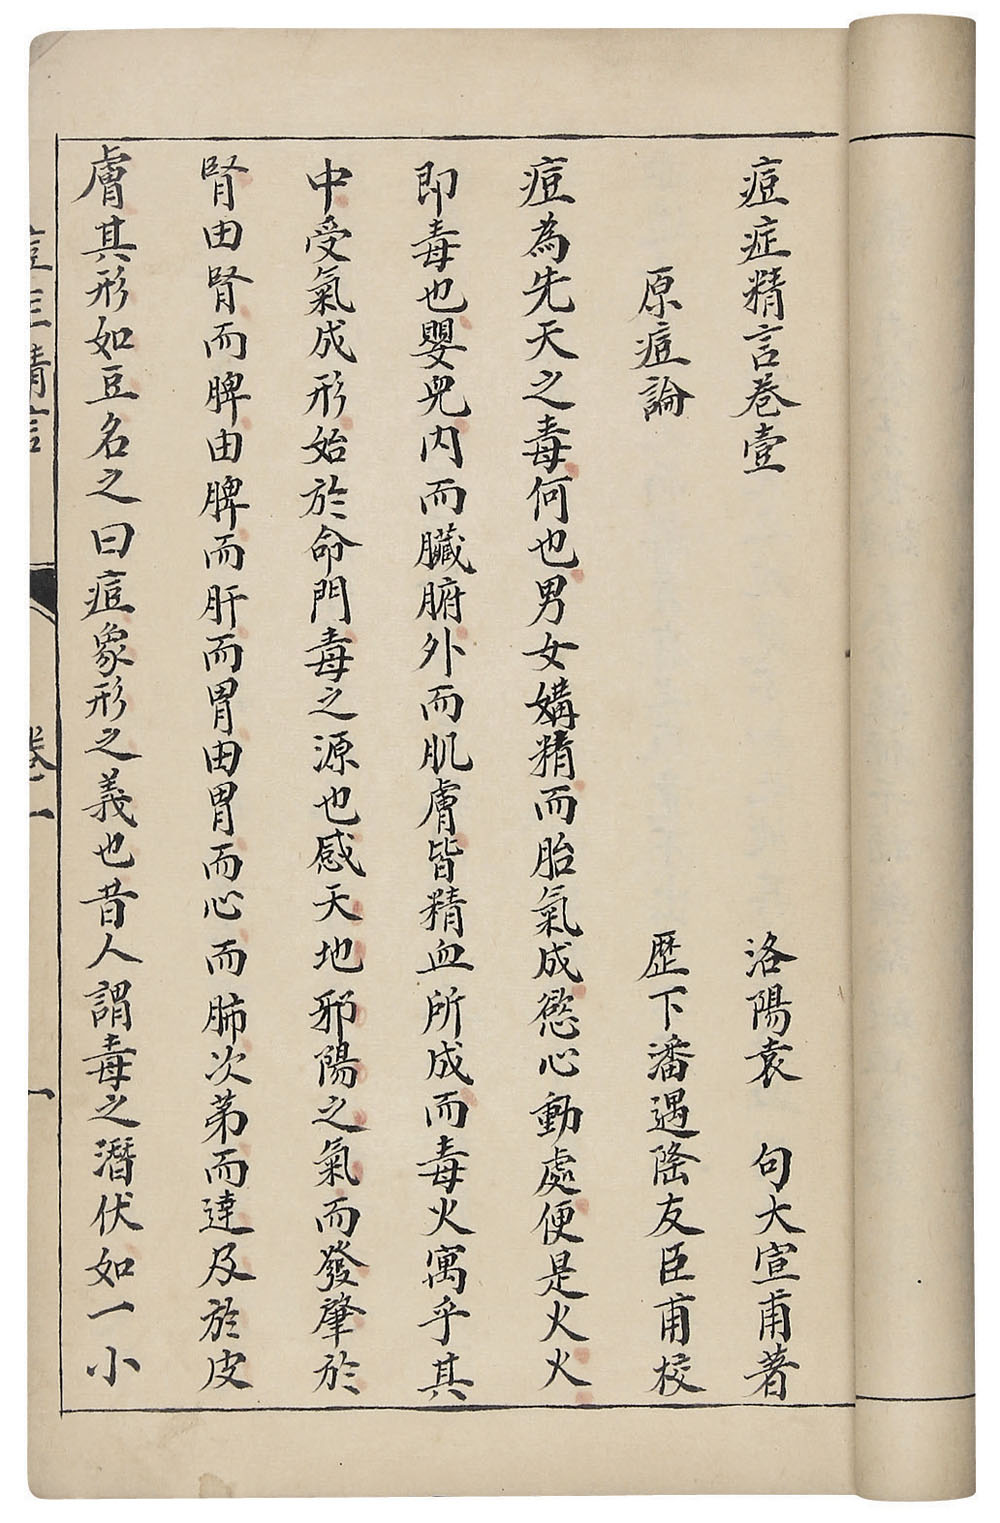 痘症精言卷壹　洛陽袁　句大宣甫著
原痘論　歷下潘遇隆友臣甫校
痘為先天之毒何也男女媾精而胎氣成慾心動處便是火火
即毒也嬰兒内而臟腑外而肌膚皆精血所成而毒火寓乎其
中受氣成形始於命門毒之源也感天地邪陽之氣而發肇於
腎由腎而脾由脾而肝而胃由胃而心而肺次第而達及於皮
膚其形如豆名之曰痘象形之義也昔人謂毒之潛伏如一小
痘症精言　卷一　一